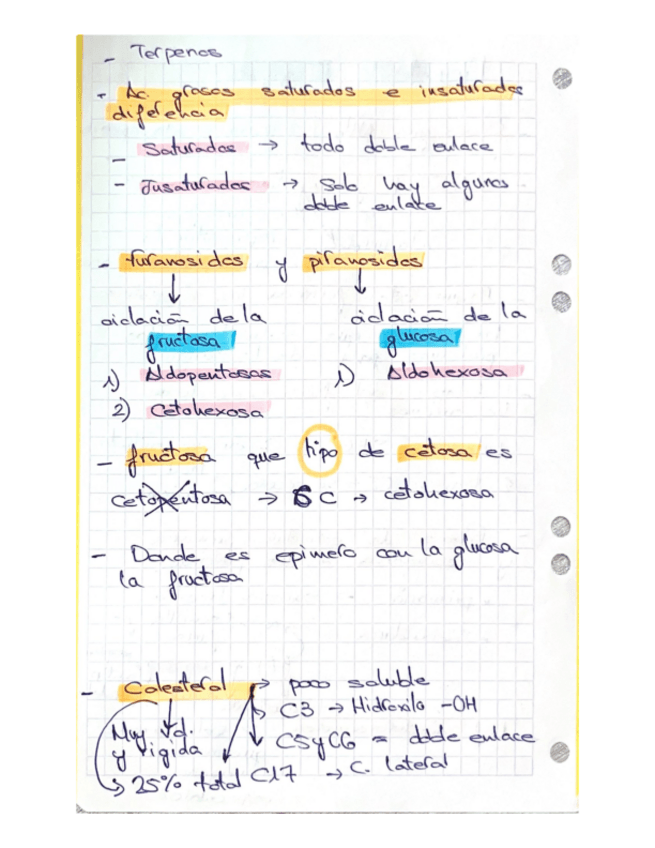 - Terpenos
- Ac. grasos saturados e insaturados
diferencia
- Saturados → todo doble enlace
- Insaturados → Solo hay algunos
doble enlace
- furanosidos y piranosidos
ciclación de la
fructosa
1) Aldopentosas
2) Cetohexosa
ciclación de la
glucosa
1) Aldohexosa
- fructosa que tipo de cetosa es
cetopentosa → 6C → cetohexosa
- Donde es epimero con la glucosa
la fructosa
- Colesterol → poco soluble
C3 → Hidroxilo -OH
C5 y C6 = doble enlace
C17 → C. lateral
Muy
y rigida
→ 25% total